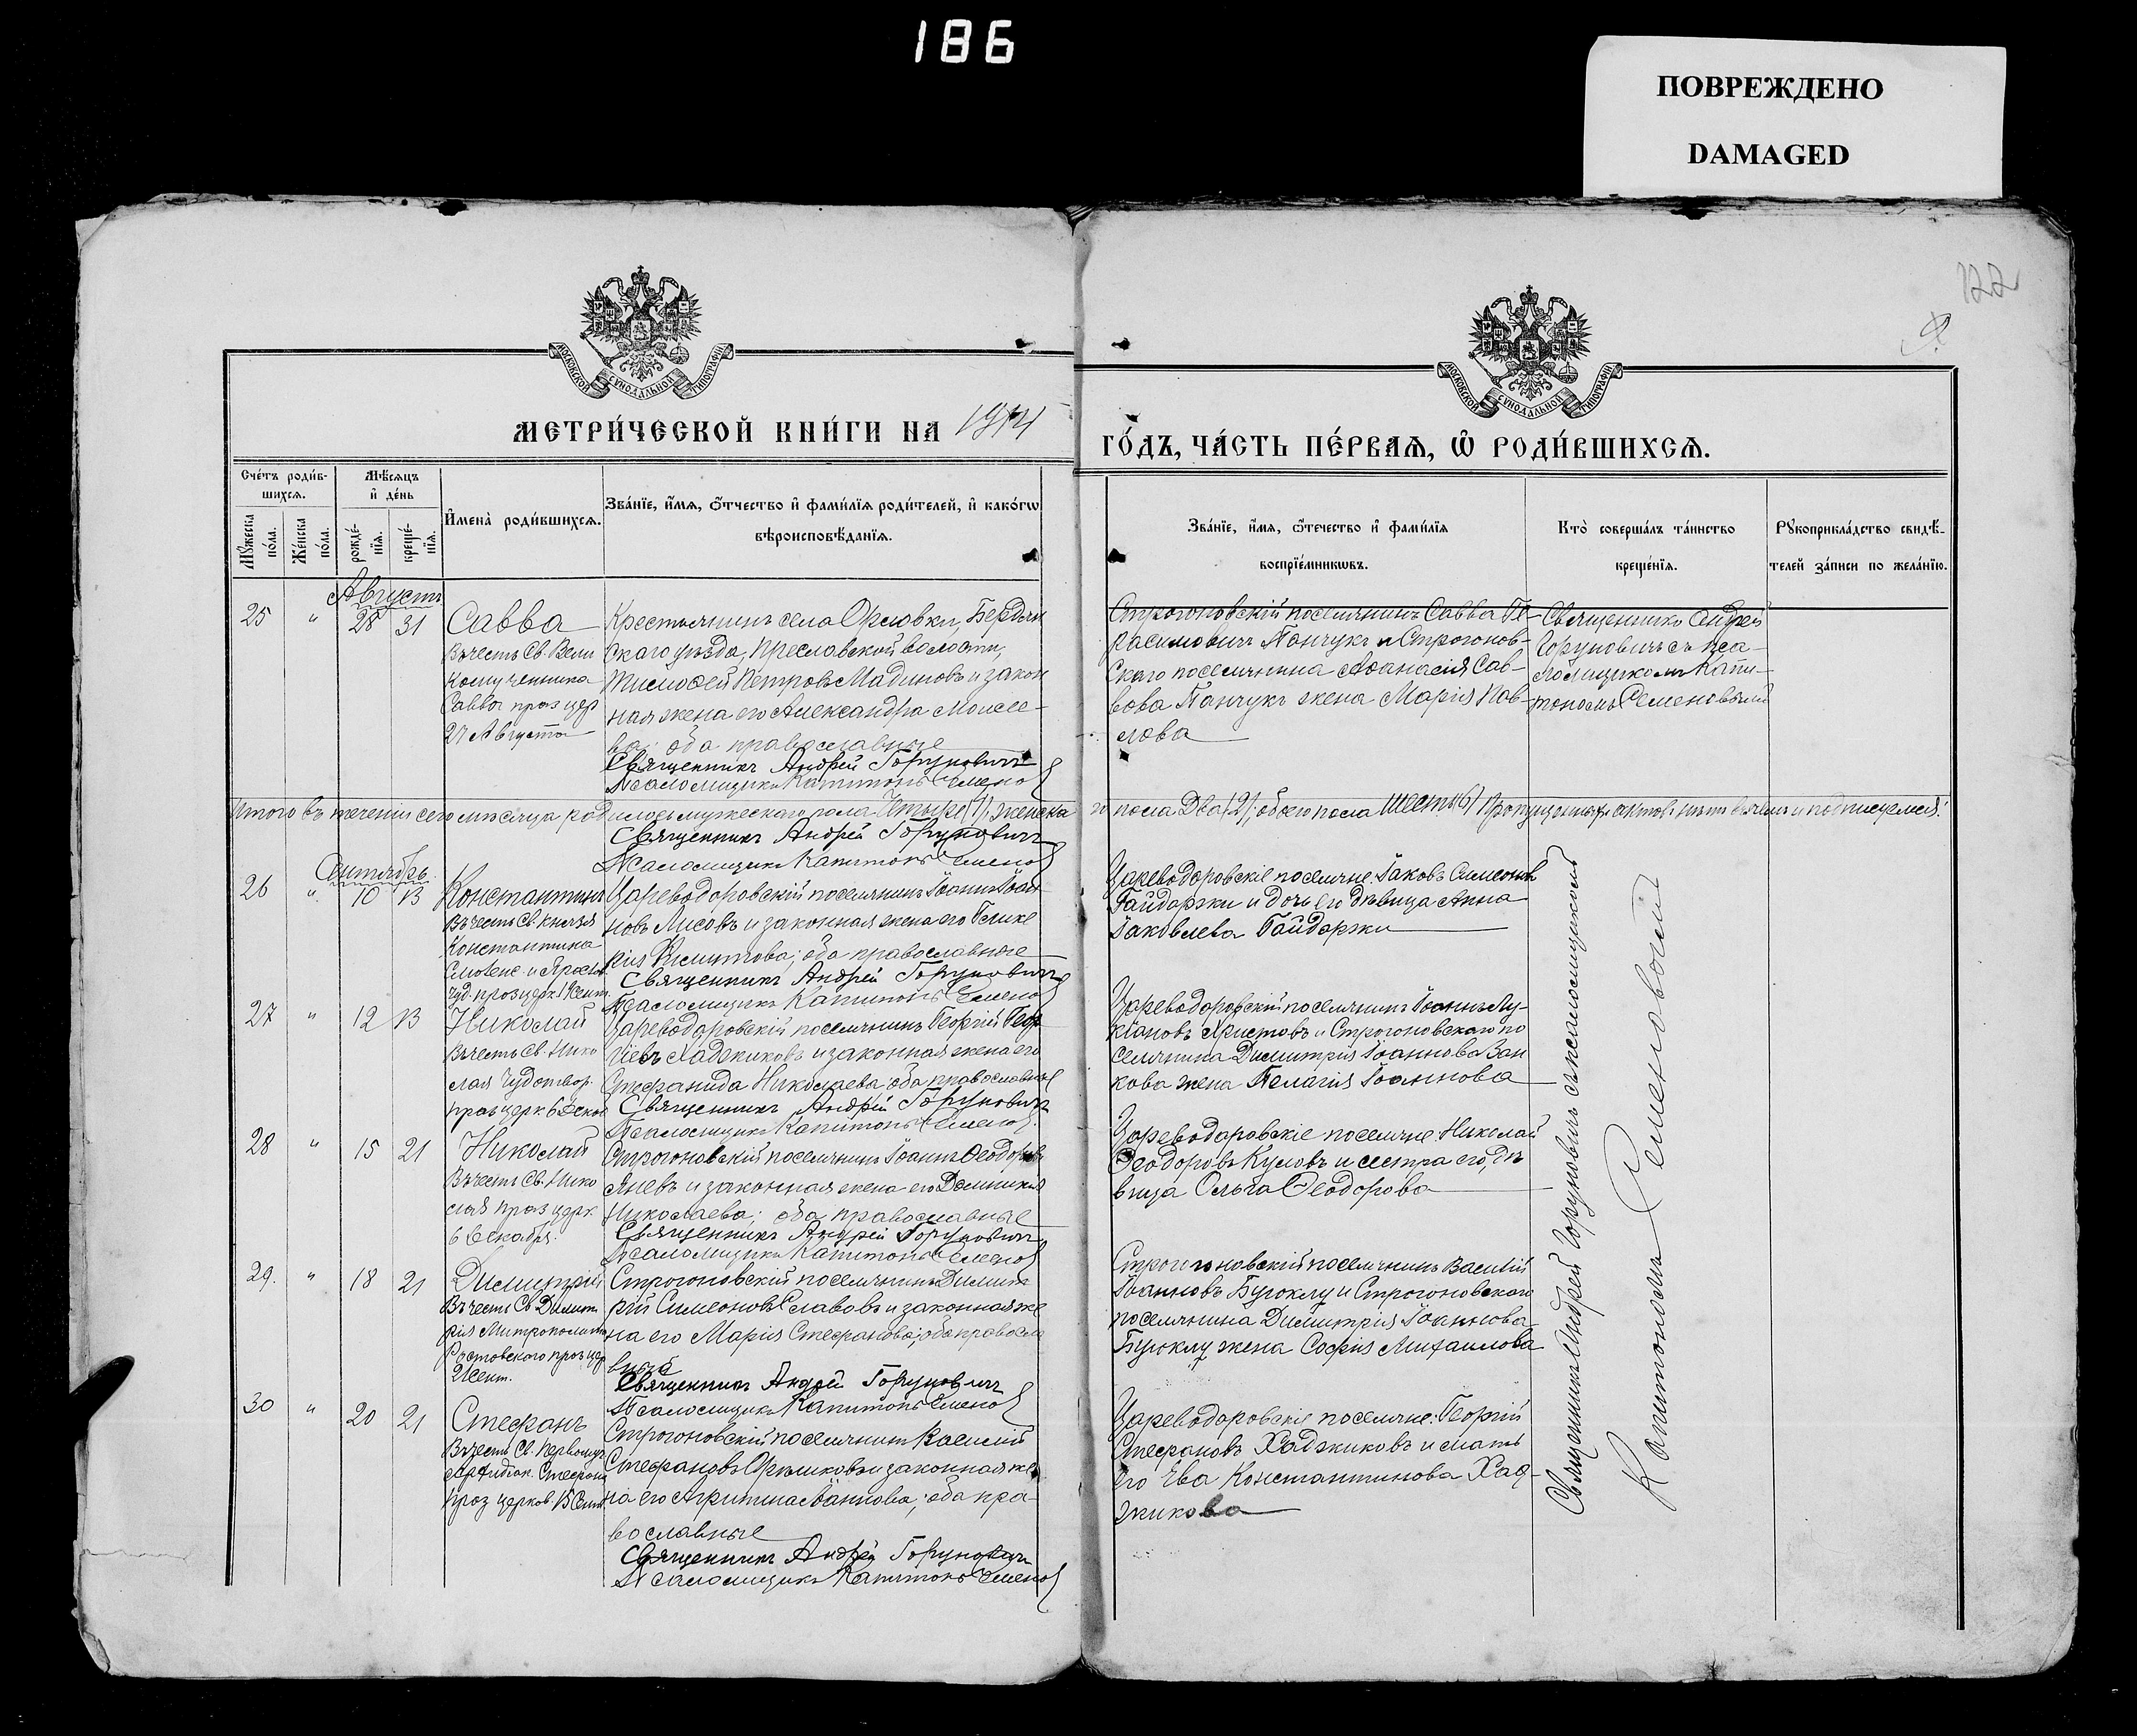 186
ПОВРЕЖДЕНО
DAMAGED
122
МОСКОВСКОЙ СѴНОДАЛЬНОЙ ТИПОГРАФІИ
МОСКОВСКОЙ СѴНОДАЛЬНОЙ ТИПОГРАФІИ
МЕТРИ́ЧЕСКОЙ КНИ́ГИ НА 1914
ГО́ДЪ, ЧА́СТЬ ПЕ́РВАѦ, Ѡ҆ РОДИ́ВШИХСѦ.
Сче́тъ роди́в-
шихсѧ.
Мꙋ́жеска по́ла.
Же́нска по́ла.
Мѣ́сѧцъ
и҆ де́нь
рожде́-
нїѧ.
креще́-
нїѧ.
И҆мена̀ роди́вшихсѧ.
Зва́нїе, и҆́мѧ, ѻ҆́тчество и҆ фами́лїѧ роди́телей, и҆ како́гѡ
вѣроисповѣ́данїѧ.
Зва́нїе, и҆́мѧ, ѻ҆те́чество и҆ фами́лїѧ
воспрїе́мникѡвъ.
Кто̀ соверша́лъ та́инство
креще́нїѧ.
Рꙋкоприкла́дство свидѣ́-
телей за́писи по жела́нїю.
Августъ
25 " 28 31 Савва
Въ честь Св. Вели
комученника
Саввы празд цер
27 Августа
Крестьянинъ села Орловки, Бердян
скаго уѣзда, Преславской волости,
Тимофей Петровъ Мадиновъ и закон
ная жена его Александра Моисее-
ва; оба православные
Священникъ Андрей Горуновичъ
Псаломщикъ Капитонъ Семенов
Строгоновскій поселянинъ Савва Ге-
расимовичъ Панчукъ и Строгонов-
скаго поселянина Аѳанасія Сав-
вова Панчукъ жена Марія Пав-
лова
Священникъ Андрей
Горуновичъ съ пса-
ломщикомъ Капи-
тономъ Семеновымъ
Итого въ теченіи сего мѣсяца родилось мужескаго пола Четыре (4), женска
го пола Два (2); обоего пола шесть (6) Пропущенныхъ актовъ нѣтъ въ чемъ и подписуемся:
Священникъ Андрей Горуновичъ
Псаломщикъ Капитонъ Семенов
Сентябрь
26 " 10 13 Константинъ
Въ честь Св. князя
Константина
Смоленс. и Яросл.
чуд. праз церк 19 сент.
Цареводаровскій поселянинъ Іоаннъ Іоан-
новъ Лисовъ и законная жена его Глике
рія Климитова; оба православные
Священникъ Андрей Горуновичъ
Псаломщикъ Капитонъ Семенов
Цареводаровскіе поселяне: Іаковъ Симеоновъ
Гайдаржи и дочь его дѣвица Анна
Іаковлева Гайдаржи
27 " 12 13 Николай
Въ честь Св. Нико
лая Чудотвор.
праз церк 6 декаб
Цареводаровскій поселянинъ Георгій Геор-
гіевъ Хаджиковъ и законная жена его
Стефанида Николаева; оба православные
Священникъ Андрей Горуновичъ
Псаломщикъ Капитонъ Семенов
Цареводаровскій поселянинъ Іоаннъ Лу-
кіановъ Христовъ и Строгоновскаго по
селянина Димитрія Іоаннова Зан
кова жена Пелагія Іоаннова
28 " 15 21 Николай
Въ честь Св. Нико
лая праз церк
6 Декабря.
Строгоновскій поселянинъ Іоаннъ Ѳеодоровъ
Яневъ и законная жена его Домникія
Николаева; оба православные
Священникъ Андрей Горуновичъ
Псаломщикъ Капитонъ Семенов
Цареводаровскіе поселяне: Николай
Ѳеодоровъ Куловъ и сестра его, дѣ
вица Ольга Ѳеодорова
29. " 18 21 Димитрій
Въ честь Св Димит
рія Митрополита
Ростовского праз цер
21 Сент.
Строгоновскій поселянинъ Димит
рій Симеоновъ Славовъ и законная же
на его Марія Стефанова; оба правосла
вные
Священникъ Андрей Горуновичъ
Псаломщикъ Капитонъ Семенов
Строгоновскій поселянинъ Василій
Іоанновъ Буюклу и Строгоновскаго
поселянина Димитрія Іоаннова
Буюклу жена Софія Михаилова
30 " 20 21 Стефанъ
Въ честь Св. Первомуч.
Архидіак. Стефана
праз церков. 15 Сент
Строгоновскій поселянинъ Василій
Стефановъ Орѣшковъ и законная же
на его Агрипина Іоаннова; оба пра-
вославные
Священникъ Андрей Горуновичъ
Псаломщикъ Капитонъ Семенов
Цареводаровскіе поселяне: Георгій
Стефановъ Хаджиковъ и мать
его Ева Константинова Хад-
жикова
Священникъ Андрей Горуновичъ съ псаломщикомъ
Капитономъ Семеновымъ